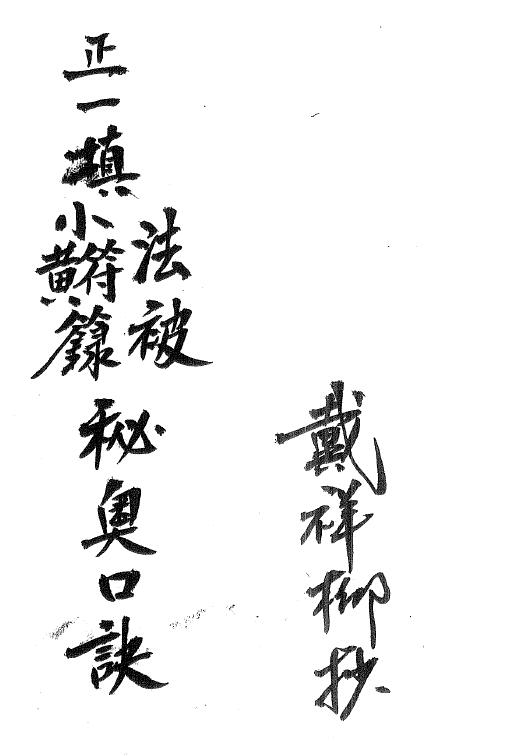 戴祥柳抄
正一填
法被
小黄符籙
秘奥口訣